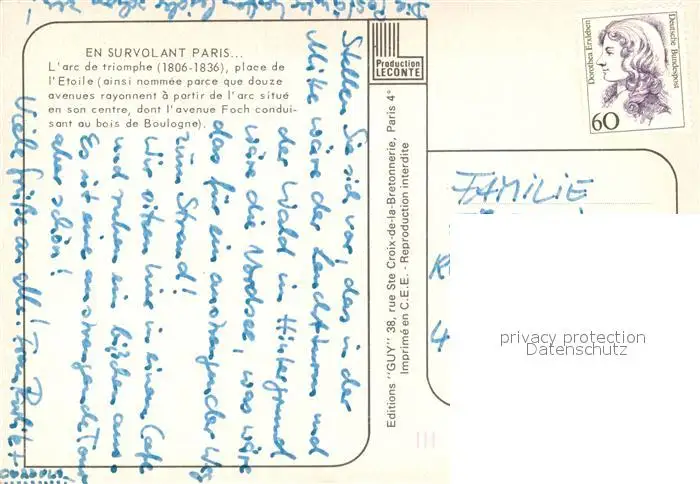 EN SURVOLANT PARIS...
L'arc de triomphe (1806-1836), place de
l'Etoile (ainsi nommée parce que douze
avenues rayonnent à partir de l'arc situé
en son centre, dont l'avenue Foch condui-
sant au bois de Boulogne).
Production
LECONTE
Editions "GUY" 38, rue Ste Croix-de-la-Bretonnerie, Paris 4°
Imprimé en C.E.E. - Reproduction interdite
Dorothea Erxleben
Deutsche Bundespost
60
Stellen Sie sich vor, das in der
Mitte wäre der Leuchtturm und
der Wald im Hintergrund
wäre die Nordsee, was wäre
das für ein anstrengender Weg
zum Strand!
Wir sitzen hier in einem Cafe
und ruhen ein bißchen aus.
Es ist eine anstrengende Tour
aber schön!
Viele Grüße an alle!
Die
FAMILIE
privacy protection
Datenschutz